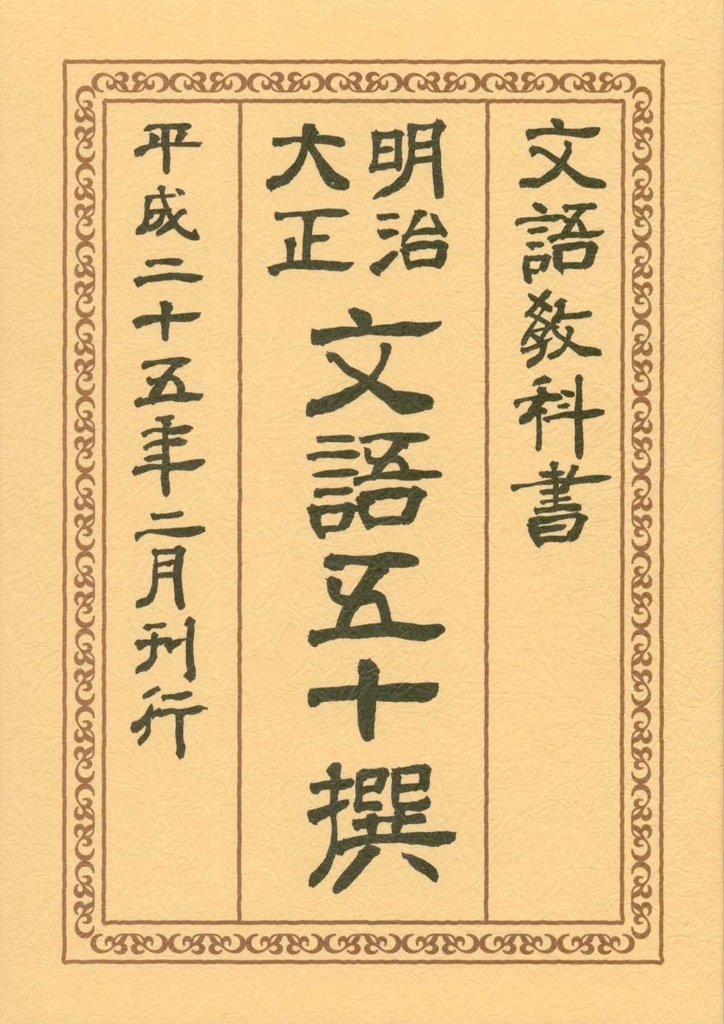 文語教科書
明治
大正
文語五十撰
平成二十五年二月刊行